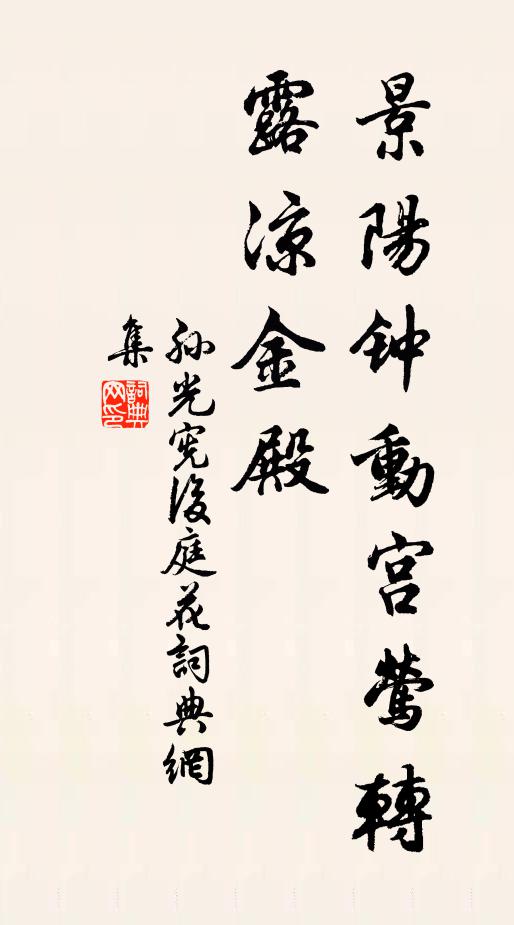 景陽钟動宫莺轉
露凉金殿
孙光宪後庭花詞典網
集
詞典
网印